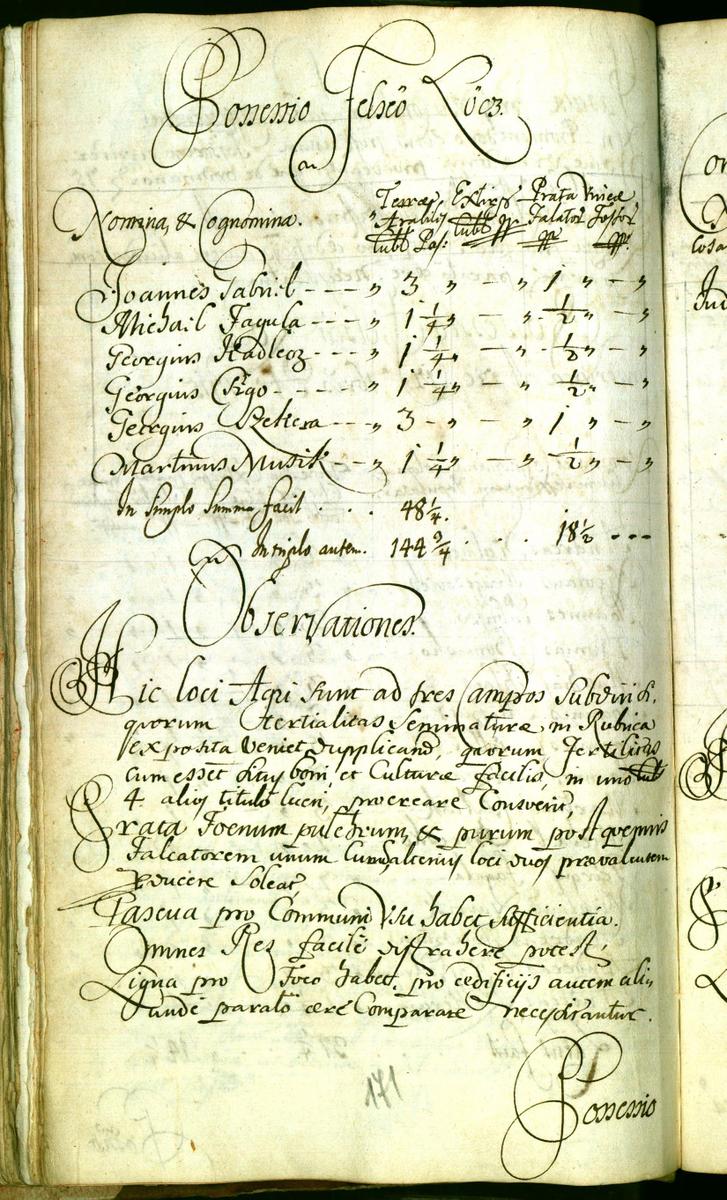 Possessio Felseö Löcz.
Nomina, & Cognomina. Terræ Arabiles Cubl Pos: Extirp Cubl Prata Falator Vineæ Fossor
Joannes Gabriel - - - „ 3 „ - „ 1 „ - „
Michail Fagula - - - „ 1 1/4 „ - „ 1/2 „ - „
Georgius Hadlecz - - - „ 1 1/4 „ - „ 1/2 „ - „
Georgius Czigo - - - - „ 1 1/4 „ - „ 1/2 „ - „
Georgius Rekera - - - „ 3 - „ - „ 1 „ - „
Martinus Musik - - „ 1 1/4 „ - „ 1/2 „ - „
In Simplo Summa facit . . . 48 1/4. 18 1/2 - - -
In triplo autem. 144 3/4 . . .
Observationes.
Hic loci Agri sunt ad tres Campos Subdivisi,
quorum tertialitas Seminaturæ in Rubrica
exposita veniet supplicand, quorum fertilitas
cum esset situs boni, et Culturæ facilis, in uno
4 alius titulo lucri, procreare Consvevit,
Prata Foenum pulchrum, & purum post quemvis
Falcatorem unum Currum alterius loci duos prævalentem
reducere Soleat,
Pascua pro Communi Usu habet sufficientia.
Omnes Res facile distrahere potest,
Ligna pro Foco habet. pro ædificijs autem ali„
unde parato ære Comparare necessitantur.
171
Possessio